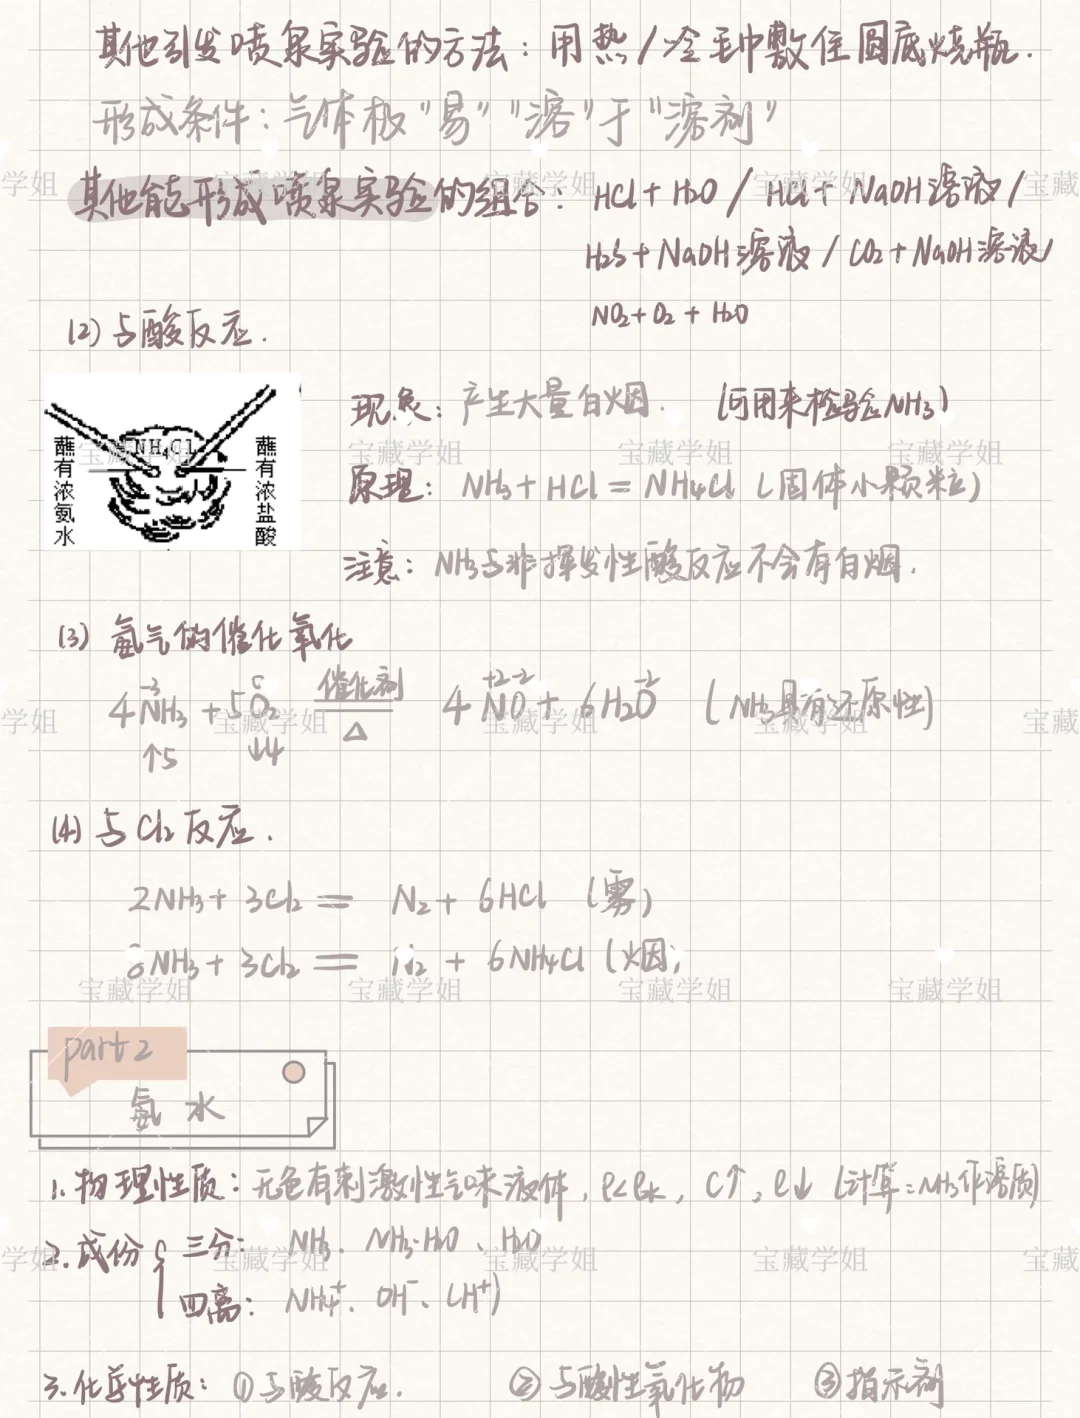 其他引发喷泉实验的方法：用热/冷毛巾敷住圆底烧瓶.
形成条件：气体极"易""溶"于"溶剂"
其他能形成喷泉实验的组合：HCl+H2O / HCl+NaOH溶液/
H2S+NaOH溶液 / CO2+NaOH溶液/
NO2+O2+H2O
(2) 与酸反应.
现象：产生大量白烟. (可用来检验NH3)
蘸有浓氨水 NH4Cl 蘸有浓盐酸
原理：NH3+HCl=NH4Cl (固体小颗粒)
注意：NH3与非挥发性酸反应不会有白烟.
(3) 氨气的催化氧化
-3 0 催化剂 +2-2 -2
4NH3+5O2 △ 4NO+6H2O (NH3具有还原性)
↑5 ↓4
(4) 与Cl2反应.
2NH3+3Cl2 = N2+6HCl (雾)
8NH3+3Cl2 = N2+6NH4Cl (烟)
part 2
氨水
1. 物理性质：无色有刺激性气味液体，ρ<ρ水，C↑，ρ↓ (计算：NH3作溶质)
2. 成份 { 三分：NH3、NH3·H2O、H2O
四离：NH4+、OH-、(H+)
3. 化学性质：①与酸反应. ②与酸性氧化物 ③指示剂
宝藏学姐